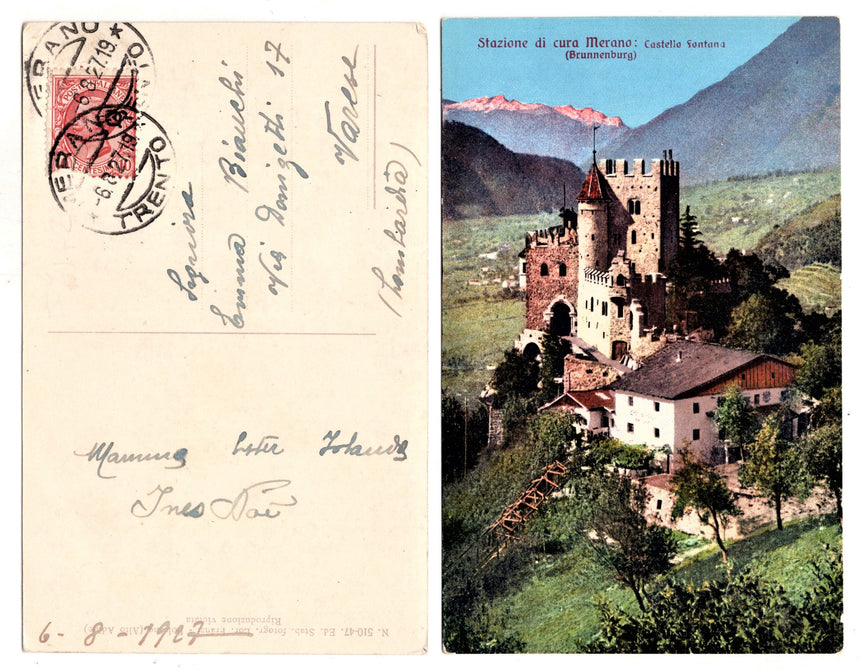 MERANO
6.8.27.19 ★
POSTE ITALIANE
MERANO
-6.8.27.19
TRENTO
Signora
Emma Bianchi
Via Donizetti 17
Varese
(Lombardia)
Mammina Ester Jolanda
Ines Noè
6 - 8 - 1927
N. 510-47. Ed. Stab. fotogr. Lor. Fränzl
Riproduzione vietata
Stazione di cura Merano: Castello Fontana
(Brunnenburg)